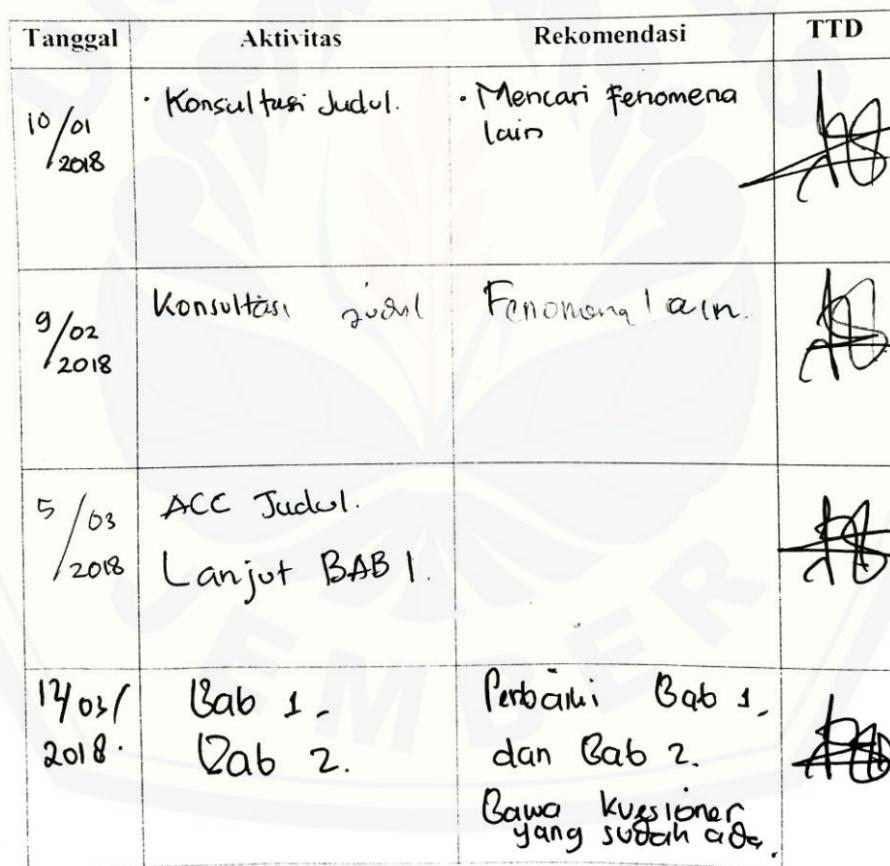 Tanggal Aktivitas Rekomendasi TTD
10/01 2018
· Konsultasi Judul.
· Mencari Fenomena
lain
9/02 2018
Konsultasi judul
Fenomena lain.
5/03 2018
ACC Judul.
Lanjut BAB 1.
03/
2018.
Bab 1.
Bab 2.
Perbaiki Bab 1.
dan Bab 2.
Bawa kuesioner
yang sudah ada.
JEMBER